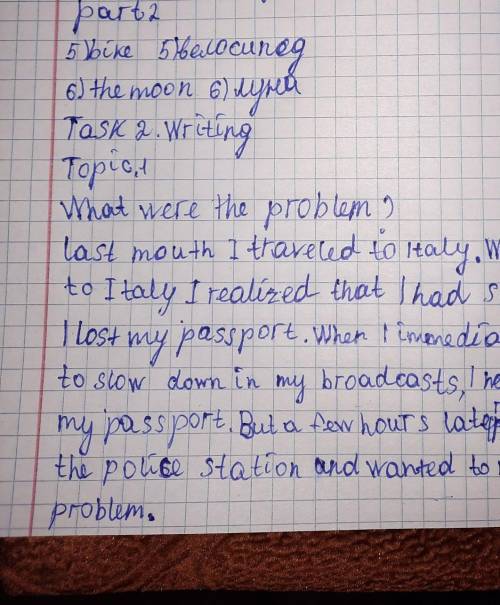 part 2
5) bike 5) велосипед
6) the moon 6) луна
Task 2. Writing
Topic 1
What were the problem?
last mouth I traveled to Italy. W
to Italy I realized that I had s
I lost my passport. When I
to slow down in my broadcasts, I ne
my passport. But a few hours later
the police station and wanted to
problem.